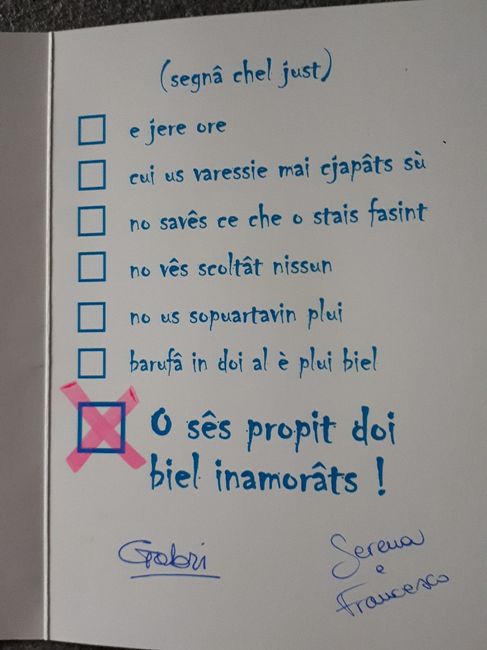 (segnâ chel just)
e jere ore
cui us varessie mai cjapâts sù
no savês ce che o stais fasint
no vês scoltât nissun
no us sopuartavin plui
barufâ in doi al è plui biel
O sês propit doi
biel inamorâts !
Gabri
Serena
e
Francesco